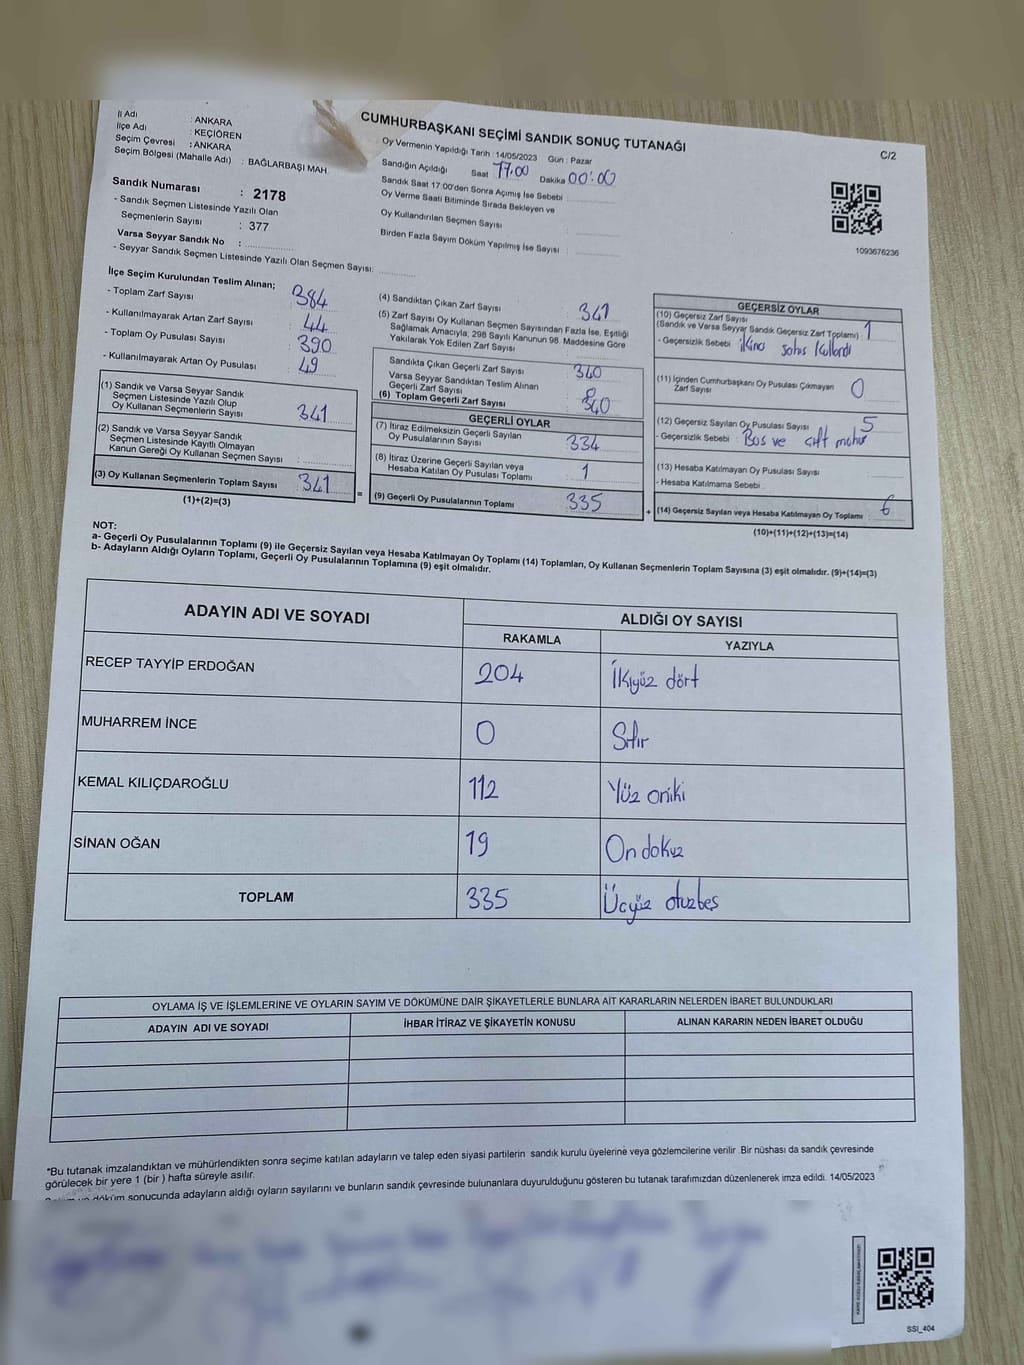 CUMHURBAŞKANI SEÇİMİ SANDIK SONUÇ TUTANAĞI
C/2
İl Adı : ANKARA
İlçe Adı : KEÇİÖREN
Seçim Çevresi : ANKARA
Seçim Bölgesi (Mahalle Adı) : BAĞLARBAŞI MAH
Sandık Numarası : 2178
- Sandık Seçmen Listesinde Yazılı Olan
Seçmenlerin Sayısı : 377
Varsa Seyyar Sandık No :
- Seyyar Sandık Seçmen Listesinde Yazılı Olan Seçmen Sayısı:
Oy Vermenin Yapıldığı Tarih :14/05/2023 Gün : Pazar
Sandığın Açıldığı Saat 17.00 Dakika 00:00
Sandık Saat 17:00'den Sonra Açımış İse Sebebi :
Oy Verme Saati Bitiminde Sırada Bekleyen ve
Oy Kullandırılan Seçmen Sayısı :
Birden Fazla Sayım Döküm Yapılmış İse Sayısı :
1093676236
İlçe Seçim Kurulundan Teslim Alınan;
- Toplam Zarf Sayısı : 384
- Kullanılmayarak Artan Zarf Sayısı : 44
- Toplam Oy Pusulası Sayısı : 390
- Kullanılmayarak Artan Oy Pusulası : 49
(1) Sandık ve Varsa Seyyar Sandık
Seçmen Listesinde Yazılı Olup
Oy Kullanan Seçmenlerin Sayısı : 341
(2) Sandık ve Varsa Seyyar Sandık
Seçmen Listesinde Kayıtlı Olmayan
Kanun Gereği Oy Kullanan Seçmen Sayısı :
(3) Oy Kullanan Seçmenlerin Toplam Sayısı : 341
(1)+(2)=(3)
(4) Sandıktan Çıkan Zarf Sayısı : 341
(5) Zarf Sayısı Oy Kullanan Seçmen Sayısından Fazla İse, Eşitliği
Sağlamak Amacıyla, 298 Sayılı Kanunun 98. Maddesine Göre
Yakılarak Yok Edilen Zarf Sayısı :
Sandıkta Çıkan Geçerli Zarf Sayısı : 340
Varsa Seyyar Sandıktan Teslim Alınan
Geçerli Zarf Sayısı : 0
(6) Toplam Geçerli Zarf Sayısı : 340
=
GEÇERLİ OYLAR
(7) İtiraz Edilmeksizin Geçerli Sayılan
Oy Pusulalarının Sayısı : 334
(8) İtiraz Üzerine Geçerli Sayılan veya
Hesaba Katılan Oy Pusulası Toplamı : 1
(9) Geçerli Oy Pusulalarının Toplamı : 335
+
GEÇERSİZ OYLAR
(10) Geçersiz Zarf Sayısı
(Sandık ve Varsa Seyyar Sandık Geçersiz Zarf Toplamı) : 1
- Geçersizlik Sebebi : ikinci şahıs kullandı
(11) İçinden Cumhurbaşkanı Oy Pusulası Çıkmayan
Zarf Sayısı : 0
(12) Geçersiz Sayılan Oy Pusulası Sayısı : 5
- Geçersizlik Sebebi : Bos ve cift mühür
(13) Hesaba Katılmayan Oy Pusulası Sayısı :
- Hesaba Katılmama Sebebi :
(14) Geçersiz Sayılan veya Hesaba Katılmayan Oy Toplamı : 6
(10)+(11)+(12)+(13)=(14)
NOT:
a- Geçerli Oy Pusulalarının Toplamı (9) ile Geçersiz Sayılan veya Hesaba Katılmayan Oy Toplamı (14) Toplamları, Oy Kullanan Seçmenlerin Toplam Sayısına (3) eşit olmalıdır. (9)+(14)=(3)
b- Adayların Aldığı Oyların Toplamı, Geçerli Oy Pusulalarının Toplamına (9) eşit olmalıdır.
ADAYIN ADI VE SOYADI ALDIĞI OY SAYISI
RAKAMLA YAZIYLA
RECEP TAYYİP ERDOĞAN 204 İkiyüz dört
MUHARREM İNCE 0 Sıfır
KEMAL KILIÇDAROĞLU 112 Yüz oniki
SİNAN OĞAN 19 On dokuz
TOPLAM 335 Üçyüz otuzbeş
OYLAMA İŞ VE İŞLEMLERİNE VE OYLARIN SAYIM VE DÖKÜMÜNE DAİR ŞİKAYETLERLE BUNLARA AİT KARARLARIN NELERDEN İBARET BULUNDUKLARI
ADAYIN ADI VE SOYADI İHBAR İTİRAZ VE ŞİKAYETİN KONUSU ALINAN KARARIN NEDEN İBARET OLDUĞU
*Bu tutanak imzalandıktan ve mühürlendikten sonra seçime katılan adayların ve talep eden siyasi partilerin sandık kurulu üyelerine veya gözlemcilerine verilir. Bir nüshası da sandık çevresinde
görülecek bir yere 1 (bir ) hafta süreyle asılır.
döküm sonucunda adayların aldığı oyların sayılarını ve bunların sandık çevresinde bulunanlara duyurulduğunu gösteren bu tutanak tarafımızdan düzenlenerek imza edildi. 14/05/2023
SSI_404